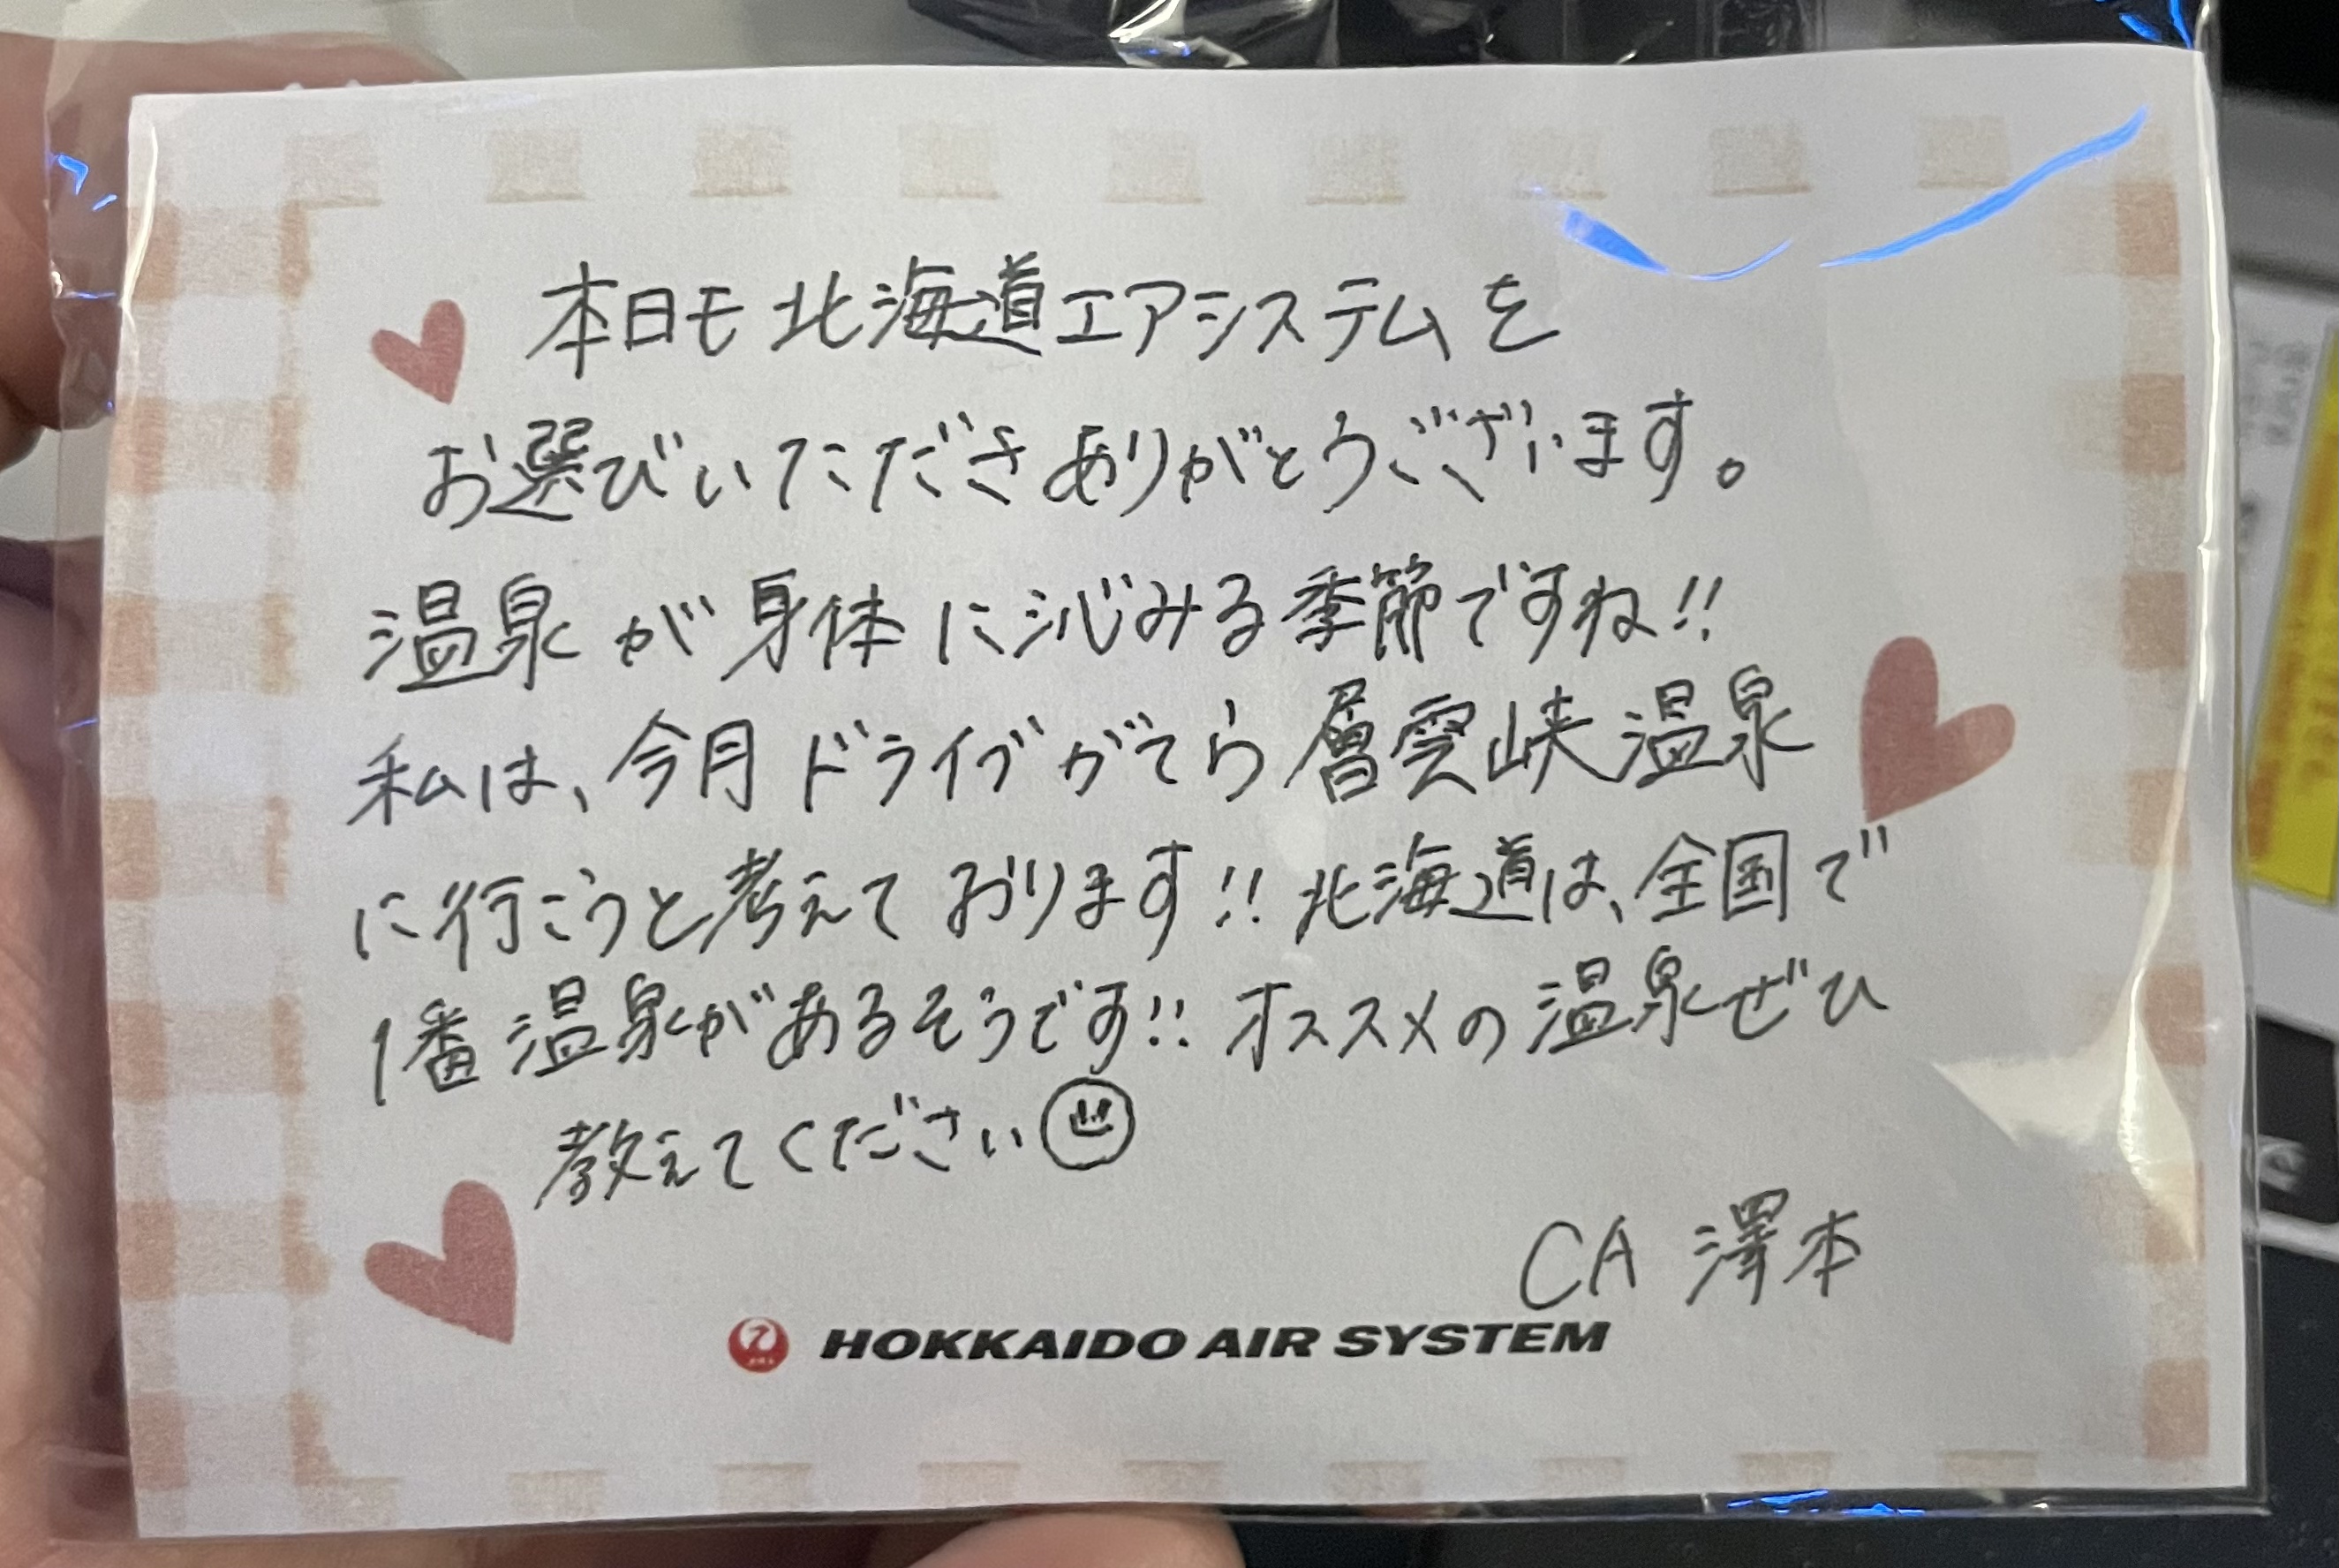 本日も北海道エアシステムを
お選びいただきありがとうございます。
温泉が身体に沁みる季節ですね!!
私は、今月ドライブがてら層雲峡温泉
に行こうと考えております!! 北海道は、全国で
1番温泉があるそうです!! オススメの温泉ぜひ
教えてください
CA 澤本
HOKKAIDO AIR SYSTEM